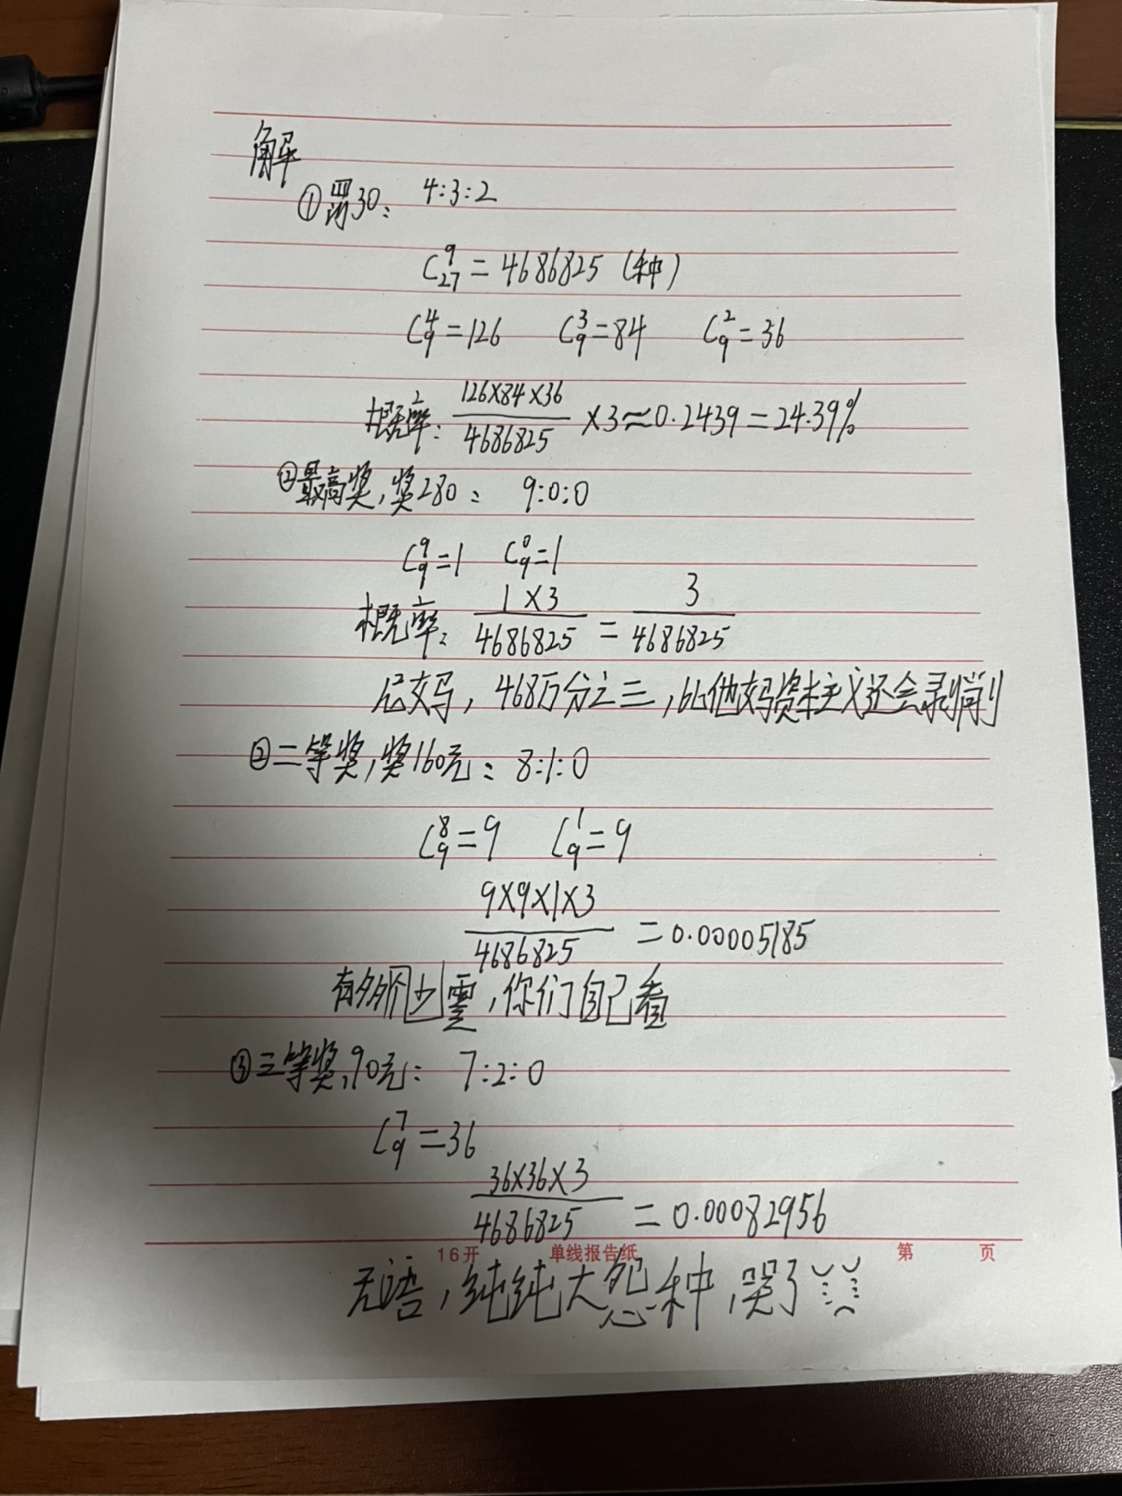 解
①罚30: 4:3:2
C₂₇⁹ = 4686825 (种)
C₉⁴=126 C₉³=84 C₉²=36
概率: 126×84×36/4686825 ×3≈0.2439=24.39%
②最高奖,奖280: 9:0:0
C₉⁹=1 C₉⁰=1
概率: 1×3/4686825 = 3/4686825
尼玛,468万分之三,比他妈资本主义还会剥削
②二等奖,奖160元: 8:1:0
C₉⁸=9 C₉¹=9
9×9×1×3/4686825 =0.00005185
有多少个零,你们自己看
③三等奖,90元: 7:2:0
C₉⁷=36
36×36×3/4686825 =0.00082956
16开 单线报告纸 第 页
无语,纯纯大怨种,哭了